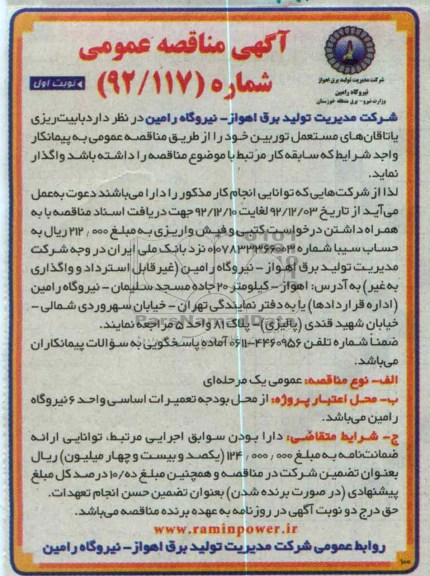 آگهی مناقصه عمومی
شماره (۹۲/۱۱۷)
نوبت اول
شرکت مدیریت تولید برق اهواز
نیروگاه رامین
وزارت نیرو - برق منطقه خوزستان
شرکت مدیریت تولید برق اهواز- نیروگاه رامین در نظر دارد بابیت‌ریزی
یاتاقان‌های مستعمل توربین خود را از طریق مناقصه عمومی به پیمانکار
واجد شرایط که سابقه کار مرتبط با موضوع مناقصه را داشته باشد واگذار
نماید.
لذا از شرکت‌هایی که توانایی انجام کار مذکور را دارا می‌باشند دعوت به‌عمل
می‌آید از تاریخ ۹۲/۱۲/۰۳ لغایت ۹۲/۱۲/۱۰ جهت دریافت اسناد مناقصه با به
همراه داشتن درخواست کتبی و فیش واریزی به مبلغ ۲۱۲/۰۰۰ ریال به
حساب سیبا شماره نزد بانک ملی ایران در وجه شرکت
مدیریت تولید برق اهواز - نیروگاه رامین (غیرقابل استرداد و واگذاری
به‌غیر) به آدرس: اهواز- کیلومتر ۲۰ جاده مسجد سلیمان - نیروگاه رامین
(اداره قراردادها) یا به دفتر نمایندگی تهران - خیابان سهروردی شمالی -
خیابان شهید قندی (پالیزی) - پلاک ۸۱ واحد ۵ مراجعه نمایند.
ضمناً شماره تلفن ۴۴۶۰۹۵۶-۰۶۱۱ آماده پاسخگویی به سؤالات پیمانکاران
می‌باشد.
الف- نوع مناقصه: عمومی یک مرحله‌ای
ب- محل اعتبار پروژه: از محل بودجه تعمیرات اساسی واحد ۶ نیروگاه
رامین می‌باشد.
ج- شرایط متقاضی: دارا بودن سوابق اجرایی مرتبط، توانایی ارائه
ضمانت‌نامه به مبلغ ۱۲۴/۰۰۰/۰۰۰ (یکصد و بیست و چهار میلیون) ریال
بعنوان تضمین شرکت در مناقصه و همچنین مبلغ ده/۱۰ درصد کل مبلغ
پیشنهادی (در صورت برنده شدن) بعنوان تضمین حسن انجام تعهدات.
حق درج دو نوبت آگهی در روزنامه به عهده برنده مناقصه می‌باشد.
www.raminpower.ir
روابط عمومی شرکت مدیریت تولید برق اهواز- نیروگاه رامین